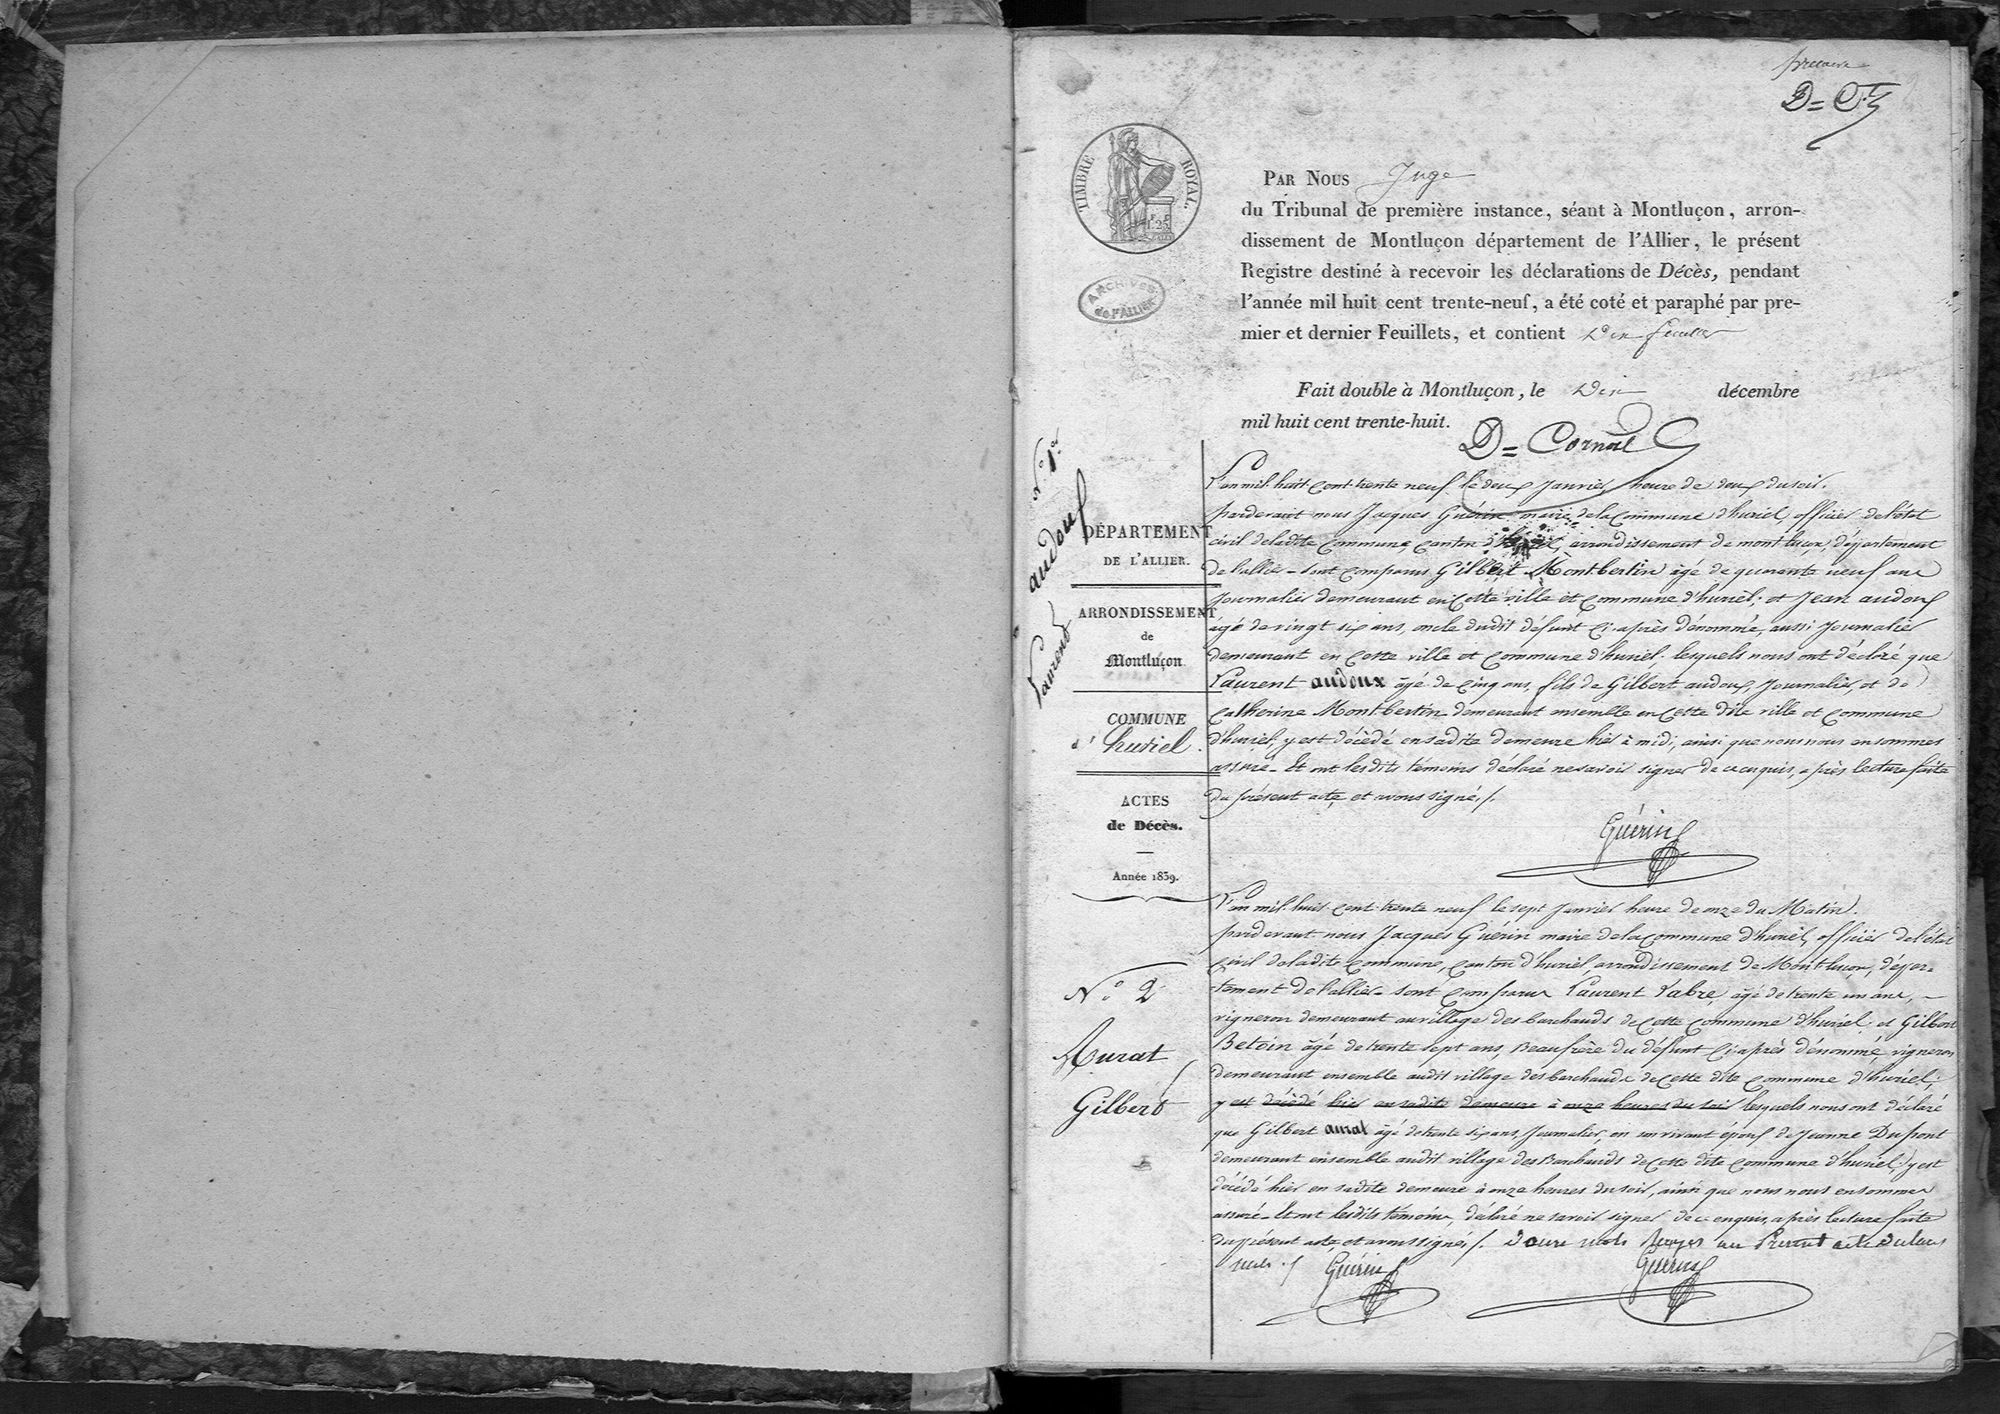 D = C
TIMBRE ROYAL.
1.25
ARCHIVES
de l'ALLIER
PAR NOUS Juge
du Tribunal de première instance, séant à Montluçon, arron-
dissement de Montluçon département de l'Allier, le présent
Registre destiné à recevoir les déclarations de Décès, pendant
l'année mil huit cent trente-neuf, a été coté et paraphé par pre-
mier et dernier Feuillets, et contient Dix feuillets
Fait double à Montluçon, le Dix décembre
mil huit cent trente-huit.
D = Cornil
N° 1er
audoux
Laurent
DÉPARTEMENT
DE L'ALLIER.
ARRONDISSEMENT
de
Montluçon
COMMUNE
d'huriel.
ACTES
de Décès.
Année 1839.
L'an mil huit cent trente neuf le deux Janvier, heure de deux du soir.
pardevant nous Jacques Guérin maire de la Commune d'huriel, officier de l'état
civil de ladite Commune, canton d'huriel, arrondissement de montluçon, département
de l'allier - sont comparus Gilbert Montbertin âgé de quarante neuf ans
Journalier demeurant en Cette ville et Commune d'huriel; et Jean audoux
âgé de vingt six ans, oncle dudit défunt Ci-après dénommé, aussi Journalier
demeurant en Cette ville et Commune d'huriel, lesquels nous ont déclaré que
Laurent audoux âgé de Cinq ans, fils de Gilbert audoux, Journalier, et de
Catherine Montbertin demeurant ensemble en Cette dite ville et Commune
d'huriel, y est décédé en sadite demeure hier à midi, ainsi que nous nous en sommes
assuré - Et ont lesdits témoins déclaré ne savoir signer de ce enquis, après lecture faite
du présent acte et avons signé./.
Guérin
N° 2
Aurat
Gilbert
L'an mil huit cent trente neuf le sept Janvier heure de onze du Matin.
pardevant nous Jacques Guérin maire de la Commune d'huriel, officier de l'état
Civil de ladite Commune, Canton d'huriel, arrondissement de Montluçon, dépar-
-tement de l'allier - sont Comparus Laurent Labre, âgé de trente un ans, -
vigneron demeurant au village des barchauds de Cette Commune d'huriel; et Gilbert
Betoin âgé de trente sept ans, Beaufrère du défunt Ci-après dénommé, vigneron
demeurant ensemble audit village des barchauds de Cette dite Commune d'huriel;
y est décédé hier en sadite demeure à onze heures du soir lesquels nous ont déclaré
que Gilbert aurat âgé de trente six ans, Journalier, en son vivant époux de Jeanne Dupont
demeurant ensemble audit village des Barchauds de Cette dite Commune d'huriel, y est
décédé hier en sadite demeure à onze heures du soir, ainsi que nous nous en sommes
assuré - Et ont lesdits témoins, déclaré ne savoir signer de ce enquis, après lecture faite
du présent acte et avons signé./. Douze mots Rayés au Présent acte
nuls ./. Guérin Guérin